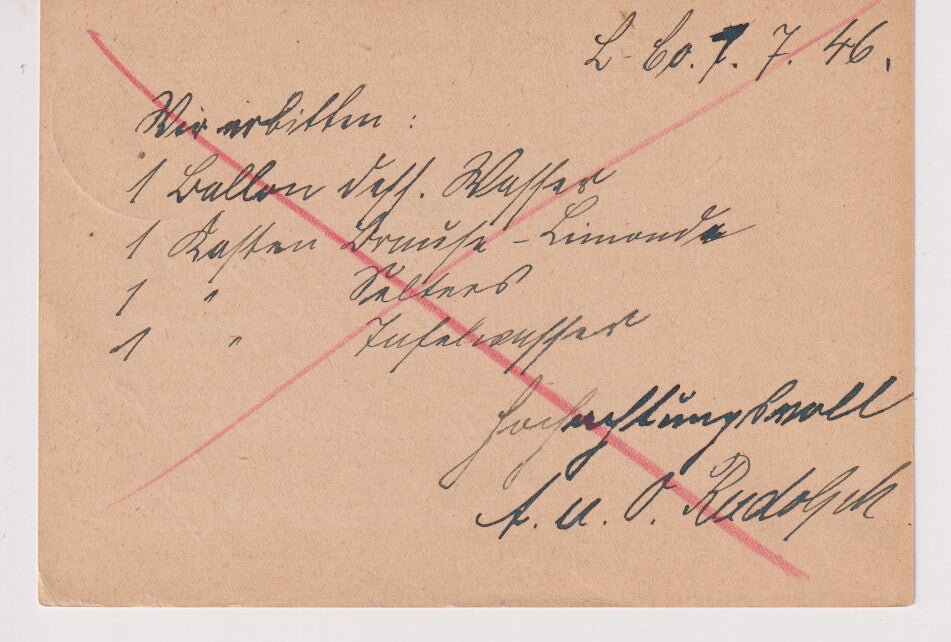 L- Co. 7. 7. 46.
Wir erbitten:
1 Ballon dest. Wasser
1 Kasten Brause-Limonade
1 " Selters
1 " Tafelwasser
Hochachtungsvoll
A. u. O.